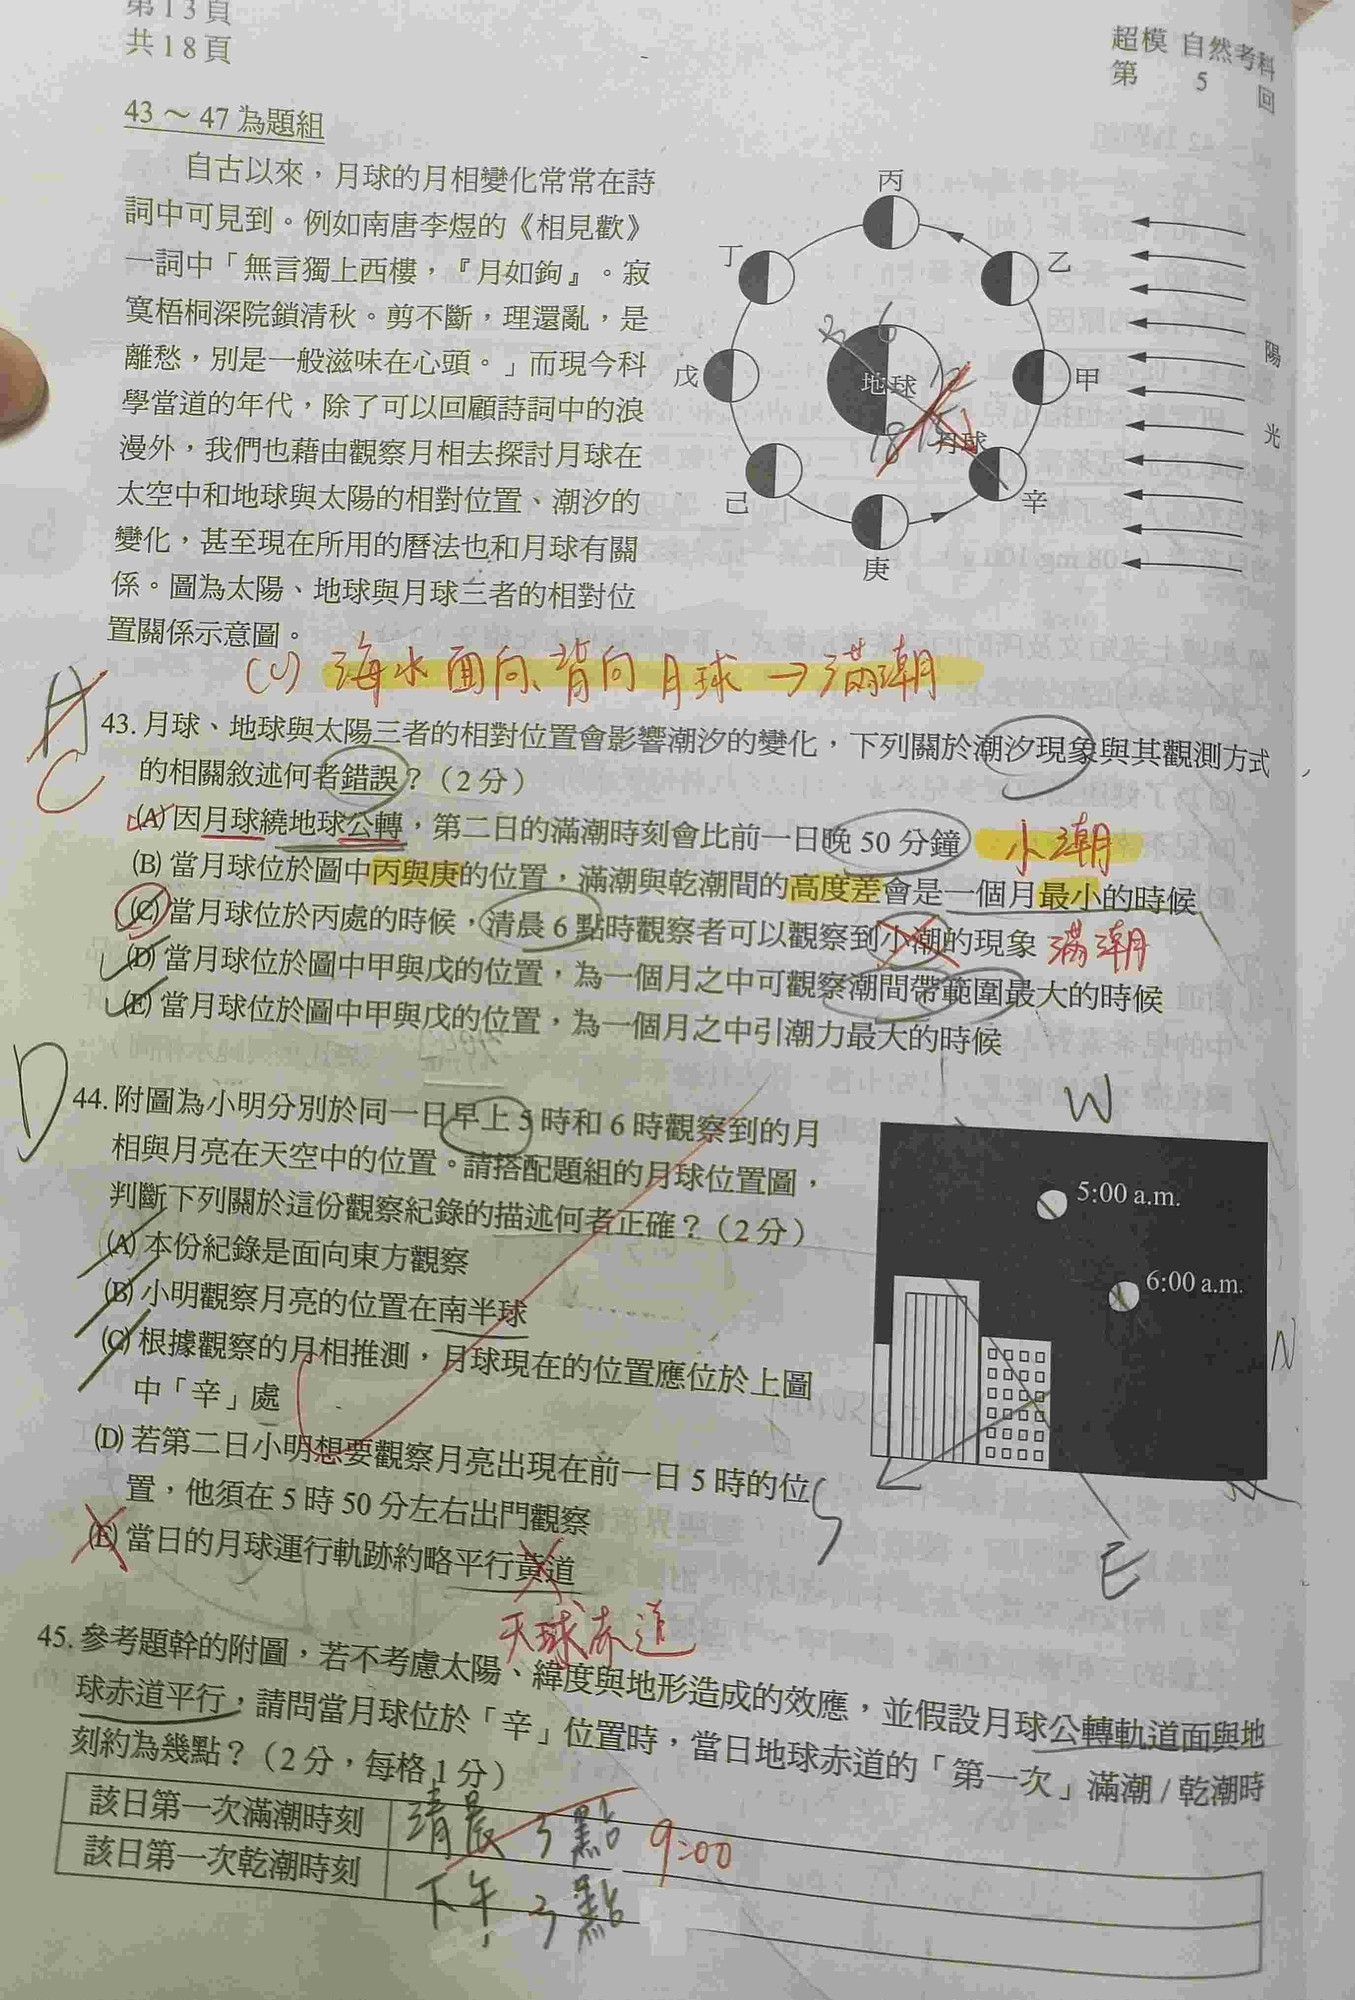 第13頁
共18頁
超模 自然考科
第 5 回
43～47為題組
自古以來，月球的月相變化常常在詩
詞中可見到。例如南唐李煜的《相見歡》
一詞中「無言獨上西樓，『月如鉤』。寂
寞梧桐深院鎖清秋。剪不斷，理還亂，是
離愁，別是一般滋味在心頭。」而現今科
學當道的年代，除了可以回顧詩詞中的浪
漫外，我們也藉由觀察月相去探討月球在
太空中和地球與太陽的相對位置、潮汐的
變化，甚至現在所用的曆法也和月球有關
係。圖為太陽、地球與月球三者的相對位
置關係示意圖。
丙
丁
乙
戊
地球
甲
月球
己
辛
庚
陽
光
6
12
18
(C) 海水面向、背向月球→滿潮
A
C
43. 月球、地球與太陽三者的相對位置會影響潮汐的變化，下列關於潮汐現象與其觀測方式
的相關敘述何者錯誤？（2分）
(A) 因月球繞地球公轉，第二日的滿潮時刻會比前一日晚50分鐘 小潮
(B) 當月球位於圖中丙與庚的位置，滿潮與乾潮間的高度差會是一個月最小的時候
(C) 當月球位於丙處的時候，清晨6點時觀察者可以觀察到小潮的現象 滿潮
(D) 當月球位於圖中甲與戊的位置，為一個月之中可觀察潮間帶範圍最大的時候
(E) 當月球位於圖中甲與戊的位置，為一個月之中引潮力最大的時候
D
44. 附圖為小明分別於同一日早上5時和6時觀察到的月
相與月亮在天空中的位置。請搭配題組的月球位置圖，
判斷下列關於這份觀察紀錄的描述何者正確？（2分）
(A) 本份紀錄是面向東方觀察
(B) 小明觀察月亮的位置在南半球
(C) 根據觀察的月相推測，月球現在的位置應位於上圖
中「辛」處
(D) 若第二日小明想要觀察月亮出現在前一日5時的位
置，他須在5時50分左右出門觀察
(E) 當日的月球運行軌跡約略平行黃道
天球赤道
W
5:00 a.m.
6:00 a.m.
N
S
E
45. 參考題幹的附圖，若不考慮太陽、緯度與地形造成的效應，並假設月球公轉軌道面與地
球赤道平行，請問當月球位於「辛」位置時，當日地球赤道的「第一次」滿潮/乾潮時
刻約為幾點？（2分，每格1分）
該日第一次滿潮時刻 清晨 3點 9:00
該日第一次乾潮時刻 下午 3點